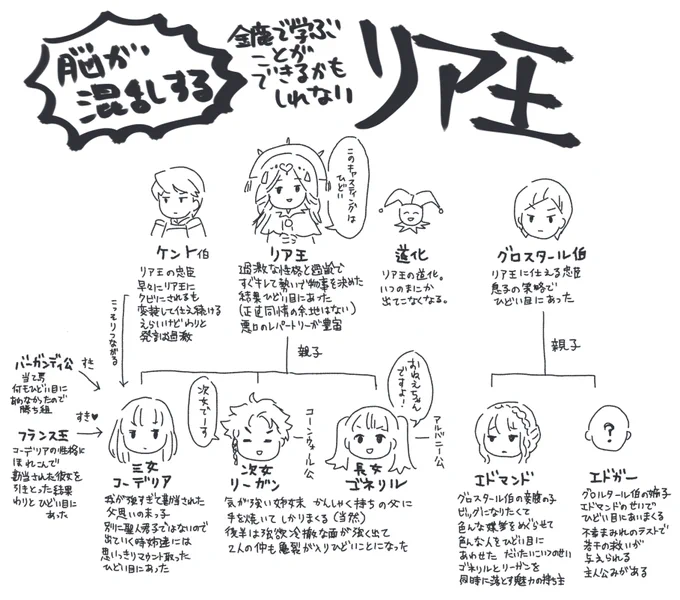 脳が
混乱する
金鹿で学ぶ
ことが
できるかも
しれない
リア王
このキャスティングは
ひどい
ケント伯
リア王の忠臣
早々にリア王に
クビにされるも
変装して仕え続ける
えらいけどわりと
発言は過激
リア王
過激な性格と過齢で
すぐキレて勢いで物事を決めた
結果ひどい目にあった
(正直同情の余地はない)
悪口のレパートリーが豊富
道化
リア王の道化。
いつのまにか
出てこなくなる。
グロスタール伯
リア王に仕える忠臣
息子の策略で
ひどい目にあった
こっそりつながる
親子
親子
バーガンディ公
すき
当て馬
何もひどい目に
あわなかったので
勝ち組
フランス王
すき♥
コーデリアの性格に
ほれこんで
勘当された彼女を
引きとった結果
わりとひどい目に
あった
次女でーす
コーンウォール公
おねえちゃん
ですよ!
アルバニー公
三女
コーデリア
我が強すぎて勘当された
父思いの末っ子
別に聖人君子ではないので
出ていく時姉達には
思いっきりマウント取った
ひどい目にあった
次女
リーガン
長女
ゴネリル
気が強い姉妹 かんしゃく持ちの父に
手を焼いて しかりまくる(当然)
後半は強欲冷徹な面が強く出て
2人の仲も亀裂が入りひどいことになった
エドマンド
グロスタール伯の妾腹の子
ビッグになりたくて
色んな謀略をめぐらせて
色んな人をひどい目に
あわせた だいたいこいつのせい
ゴネリルとリーガンを
同時に落とす魅力の持ち主
?
エドガー
グロスタール伯の嫡子
エドマンドのせいで
ひどい目にあいまくる
不幸まみれのラストで
若干の救いが
与えられる
主人公みがある